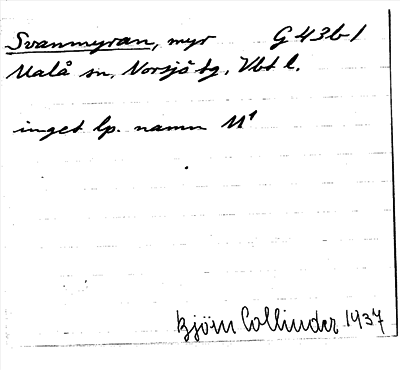 Svanmyran, myr G 43b1
Malå sn, Norsjö tg, Vbt l.
inget lp. namn M¹
Björn Collinder 1937